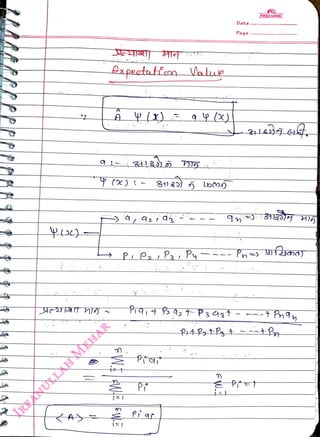 Date
Page
प्रत्याशा मान
Expectation Value
∵ Â ψ(x) = a ψ(x)
a :- आइगेन मान
ψ(x) :- आइगेन फलन
ψ(x) → a₁ a₂, a₃ - - - - aₙ ⇒ आइगेन मान
→ P₁ P₂, P₃, P₄ - - - - Pₙ ⇒ प्रायिकता
प्रत्याशा मान = P₁a₁ + P₂a₂ + P₃a₃ + - - - - + Pₙaₙ
P₁ + P₂ + P₃ + - - - + Pₙ
= Σ Pᵢ aᵢ
n
i=1
Σ Pᵢ
n
i=1
Σ Pᵢ = 1
n
i=1
<A> = Σ Pᵢ aᵢ
n
i=1
IRFANULLAH MEHAR